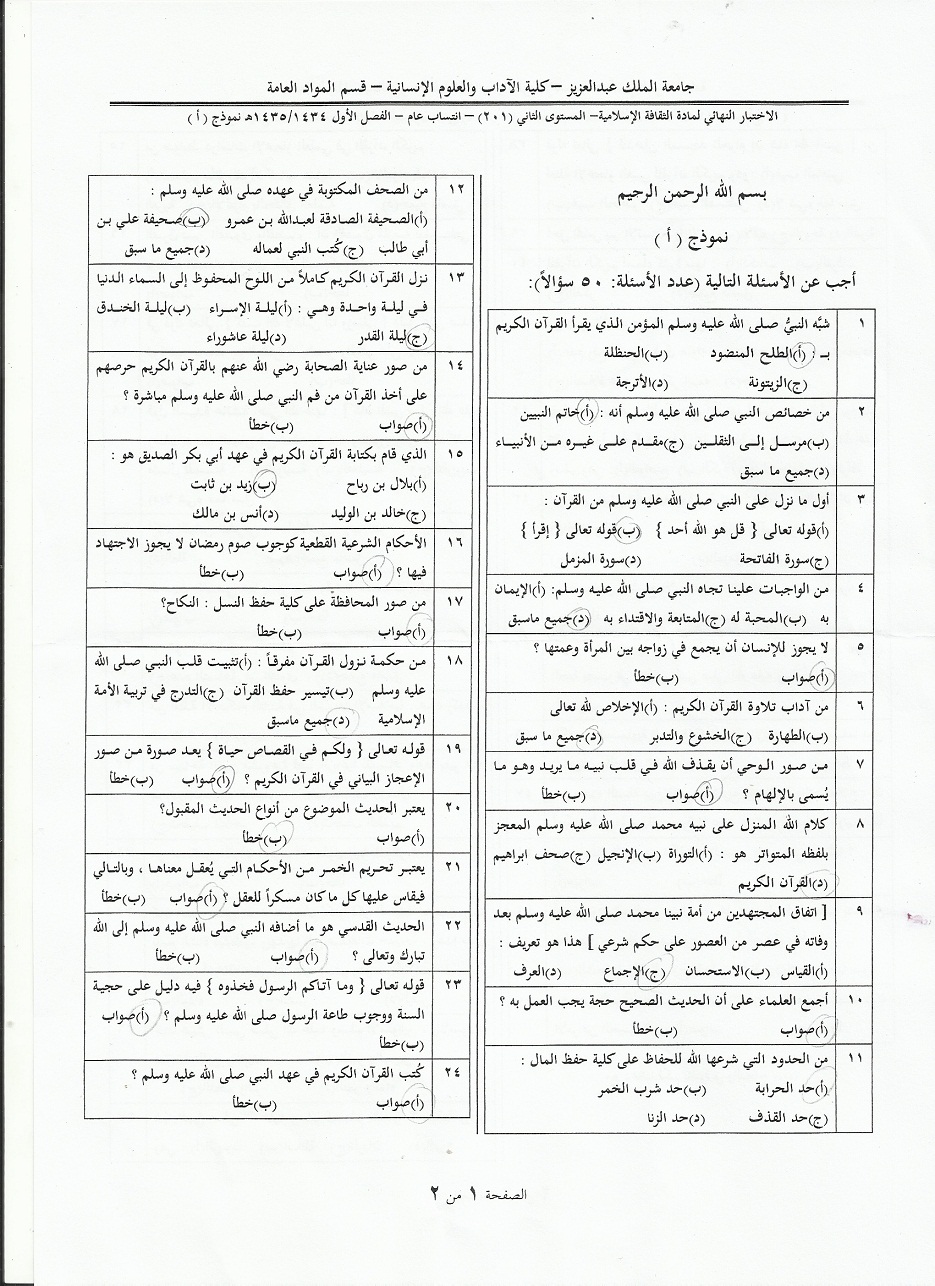 جامعة الملك عبدالعزيز – كلية الآداب والعلوم الإنسانية – قسم المواد العامة
الاختبار النهائي لمادة الثقافة الإسلامية– المستوى الثاني (٢٠١) – انتساب عام – الفصل الأول ١٤٣٥/١٤٣٤هـ نموذج ( أ )
بسم الله الرحمن الرحيم
نموذج ( أ )
أجب عن الأسئلة التالية (عدد الأسئلة: ٥٠ سؤالاً):
١ شبَّه النبيُّ صلى الله عليه وسلم المؤمن الذي يقرأ القرآن الكريم
بـ : (أ)الطلح المنضود (ب)الحنظلة
(ج)الزيتونة (د)الأترجة
٢ من خصائص النبي صلى الله عليه وسلم أنه : (أ)خاتم النبيين
(ب)مرسل إلى الثقلين (ج)مقدم على غيره من الأنبياء
(د)جميع ما سبق
٣ أول ما نزل على النبي صلى الله عليه وسلم من القرآن :
(أ)قوله تعالى { قل هو الله أحد } (ب)قوله تعالى { إقرأ }
(ج)سورة الفاتحة (د)سورة المزمل
٤ من الواجبات علينا تجاه النبي صلى الله عليه وسلم: (أ)الإيمان
به (ب)المحبة له (ج)المتابعة والاقتداء به (د)جميع ماسبق
٥ لا يجوز للإنسان أن يجمع في زواجه بين المرأة وعمتها ؟
(أ)صواب (ب)خطأ
٦ من آداب تلاوة القرآن الكريم : (أ)الإخلاص لله تعالى
(ب)الطهارة (ج)الخشوع والتدبر (د)جميع ما سبق
٧ من صور الوحي أن يقذف الله في قلب نبيه ما يريد وهو ما
يُسمى بالإلهام ؟ (أ)صواب (ب)خطأ
٨ كلام الله المنزل على نبيه محمد صلى الله عليه وسلم المعجز
بلفظه المتواتر هو : (أ)التوراة (ب)الإنجيل (ج)صحف ابراهيم
(د)القرآن الكريم
٩ [ اتفاق المجتهدين من أمة نبينا محمد صلى الله عليه وسلم بعد
وفاته في عصر من العصور على حكم شرعي ] هذا هو تعريف :
(أ)القياس (ب)الاستحسان (ج)الإجماع (د)العرف
١٠ أجمع العلماء على أن الحديث الصحيح حجة يجب العمل به ؟
(أ)صواب (ب)خطأ
١١ من الحدود التي شرعها الله للحفاظ على كلية حفظ المال :
(أ)حد الحرابة (ب)حد شرب الخمر
(ج)حد القذف (د)حد الزنا
١٢ من الصحف المكتوبة في عهده صلى الله عليه وسلم :
(أ)الصحيفة الصادقة لعبدالله بن عمرو (ب)صحيفة علي بن
أبي طالب (ج)كُتب النبي لعماله (د)جميع ما سبق
١٣ نزل القرآن الكريم كاملاً من اللوح المحفوظ إلى السماء الدنيا
في ليلة واحدة وهي : (أ)ليلة الإسراء (ب)ليلة الخندق
(ج)ليلة القدر (د)ليلة عاشوراء
١٤ من صور عناية الصحابة رضي الله عنهم بالقرآن الكريم حرصهم
على أخذ القرآن من فم النبي صلى الله عليه وسلم مباشرة ؟
(أ)صواب (ب)خطأ
١٥ الذي قام بكتابة القرآن الكريم في عهد أبي بكر الصديق هو :
(أ)بلال بن رباح (ب)زيد بن ثابت
(ج)خالد بن الوليد (د)أنس بن مالك
١٦ الأحكام الشرعية القطعية كوجوب صوم رمضان لا يجوز الاجتهاد
فيها ؟ (أ)صواب (ب)خطأ
١٧ من صور المحافظة على كلية حفظ النسل : النكاح؟
(أ)صواب (ب)خطأ
١٨ من حكمة نزول القرآن مفرقاً : (أ)تثبيت قلب النبي صلى الله
عليه وسلم (ب)تيسير حفظ القرآن (ج)التدرج في تربية الأمة
الإسلامية (د)جميع ماسبق
١٩ قوله تعالى { ولكم في القصاص حياة } يعد صورة من صور
الإعجاز البياني في القرآن الكريم ؟ (أ)صواب (ب)خطأ
٢٠ يعتبر الحديث الموضوع من أنواع الحديث المقبول؟
(أ)صواب (ب)خطأ
٢١ يعتبر تحريم الخمر من الأحكام التي يُعقل معناها ، وبالتالي
فيقاس عليها كل ما كان مسكراً للعقل ؟ (أ)صواب (ب)خطأ
٢٢ الحديث القدسي هو ما أضافه النبي صلى الله عليه وسلم إلى الله
تبارك وتعالى ؟ (أ)صواب (ب)خطأ
٢٣ قوله تعالى { وما آتاكم الرسول فخذوه } فيه دليل على حجية
السنة ووجوب طاعة الرسول صلى الله عليه وسلم ؟ (أ)صواب
(ب)خطأ
٢٤ كُتب القرآن الكريم في عهد النبي صلى الله عليه وسلم ؟
(أ)صواب (ب)خطأ
الصفحة ١ من ٢